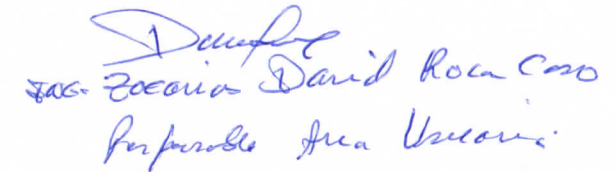 Ing. Zocarias David Roca Caso
Responsable Area Usuaria